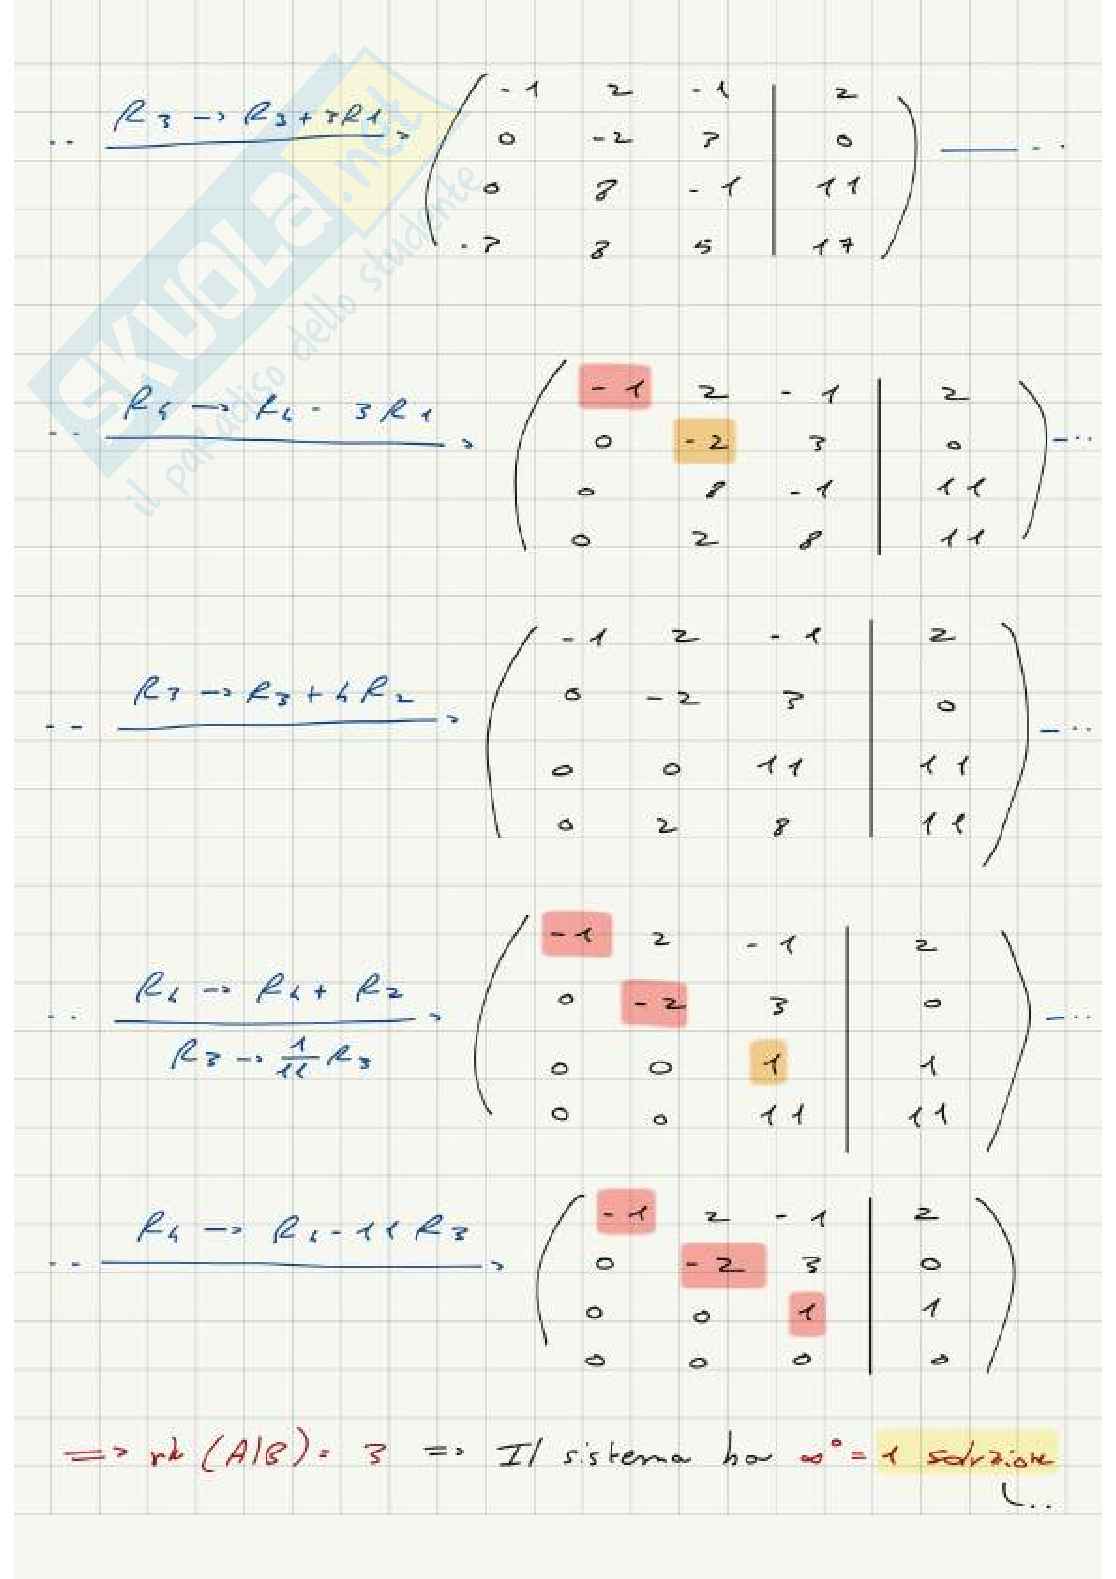 .. R3 -> R3+3R1 -> ( -1 2 -1 | 2 ) -- ..
0 -2 3 | 0
0 8 -1 | 11
-3 8 5 | 17
SKUOLA.net
il paradiso dello studente
.. R4 -> R4 - 3R1 -> ( -1 2 -1 | 2 ) -..
0 -2 3 | 0
0 8 -1 | 11
0 2 8 | 11
-- R3 -> R3+4R2 -> ( -1 2 -1 | 2 ) -..
0 -2 3 | 0
0 0 11 | 11
0 2 8 | 11
.. R4 -> R4+R2 -> ( -1 2 -1 | 2 ) -..
R3 -> 1/11 R3
0 -2 3 | 0
0 0 1 | 1
0 0 11 | 11
.. R4 -> R4-11R3 -> ( -1 2 -1 | 2 )
0 -2 3 | 0
0 0 1 | 1
0 0 0 | 0
=> rk (A|B) = 3 => Il sistema ha ∞⁰ = 1 soluzione
..